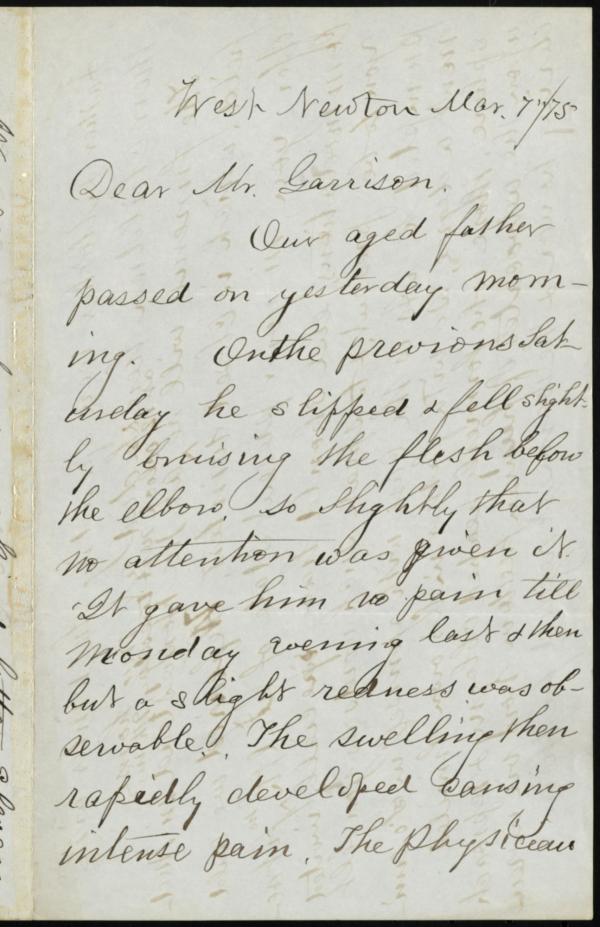 West Newton Mar. 7th/75
Dear Mr. Garrison.
Our aged father
passed on yesterday morn-
ing. On the previous Sat-
urday he slipped & fell slight-
ly bruising the flesh below
the elbow. so slightly that
no attention was given it
It gave him no pain till
Monday evening last & then
but a slight redness was ob-
servable. The swelling then
rapidly developed causing
intense pain. The physician